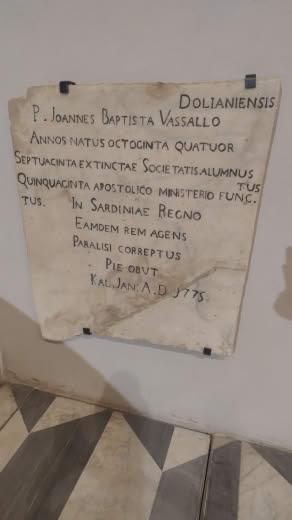 DOLIANIENSIS
P. JOANNES BAPTISTA VASSALLO
ANNOS NATUS OCTOGINTA QUATUOR
SEPTUAGINTA EXTINCTAE SOCIETATIS ALUMNUS
QUINQUAGINTA APOSTOLICO MINISTERIO FUNC. TUS
TUS. IN SARDINIAE REGNO
EAMDEM REM AGENS
PARALISI CORREPTUS
PIE OBIIT
KAL. JAN. A.D 1775.